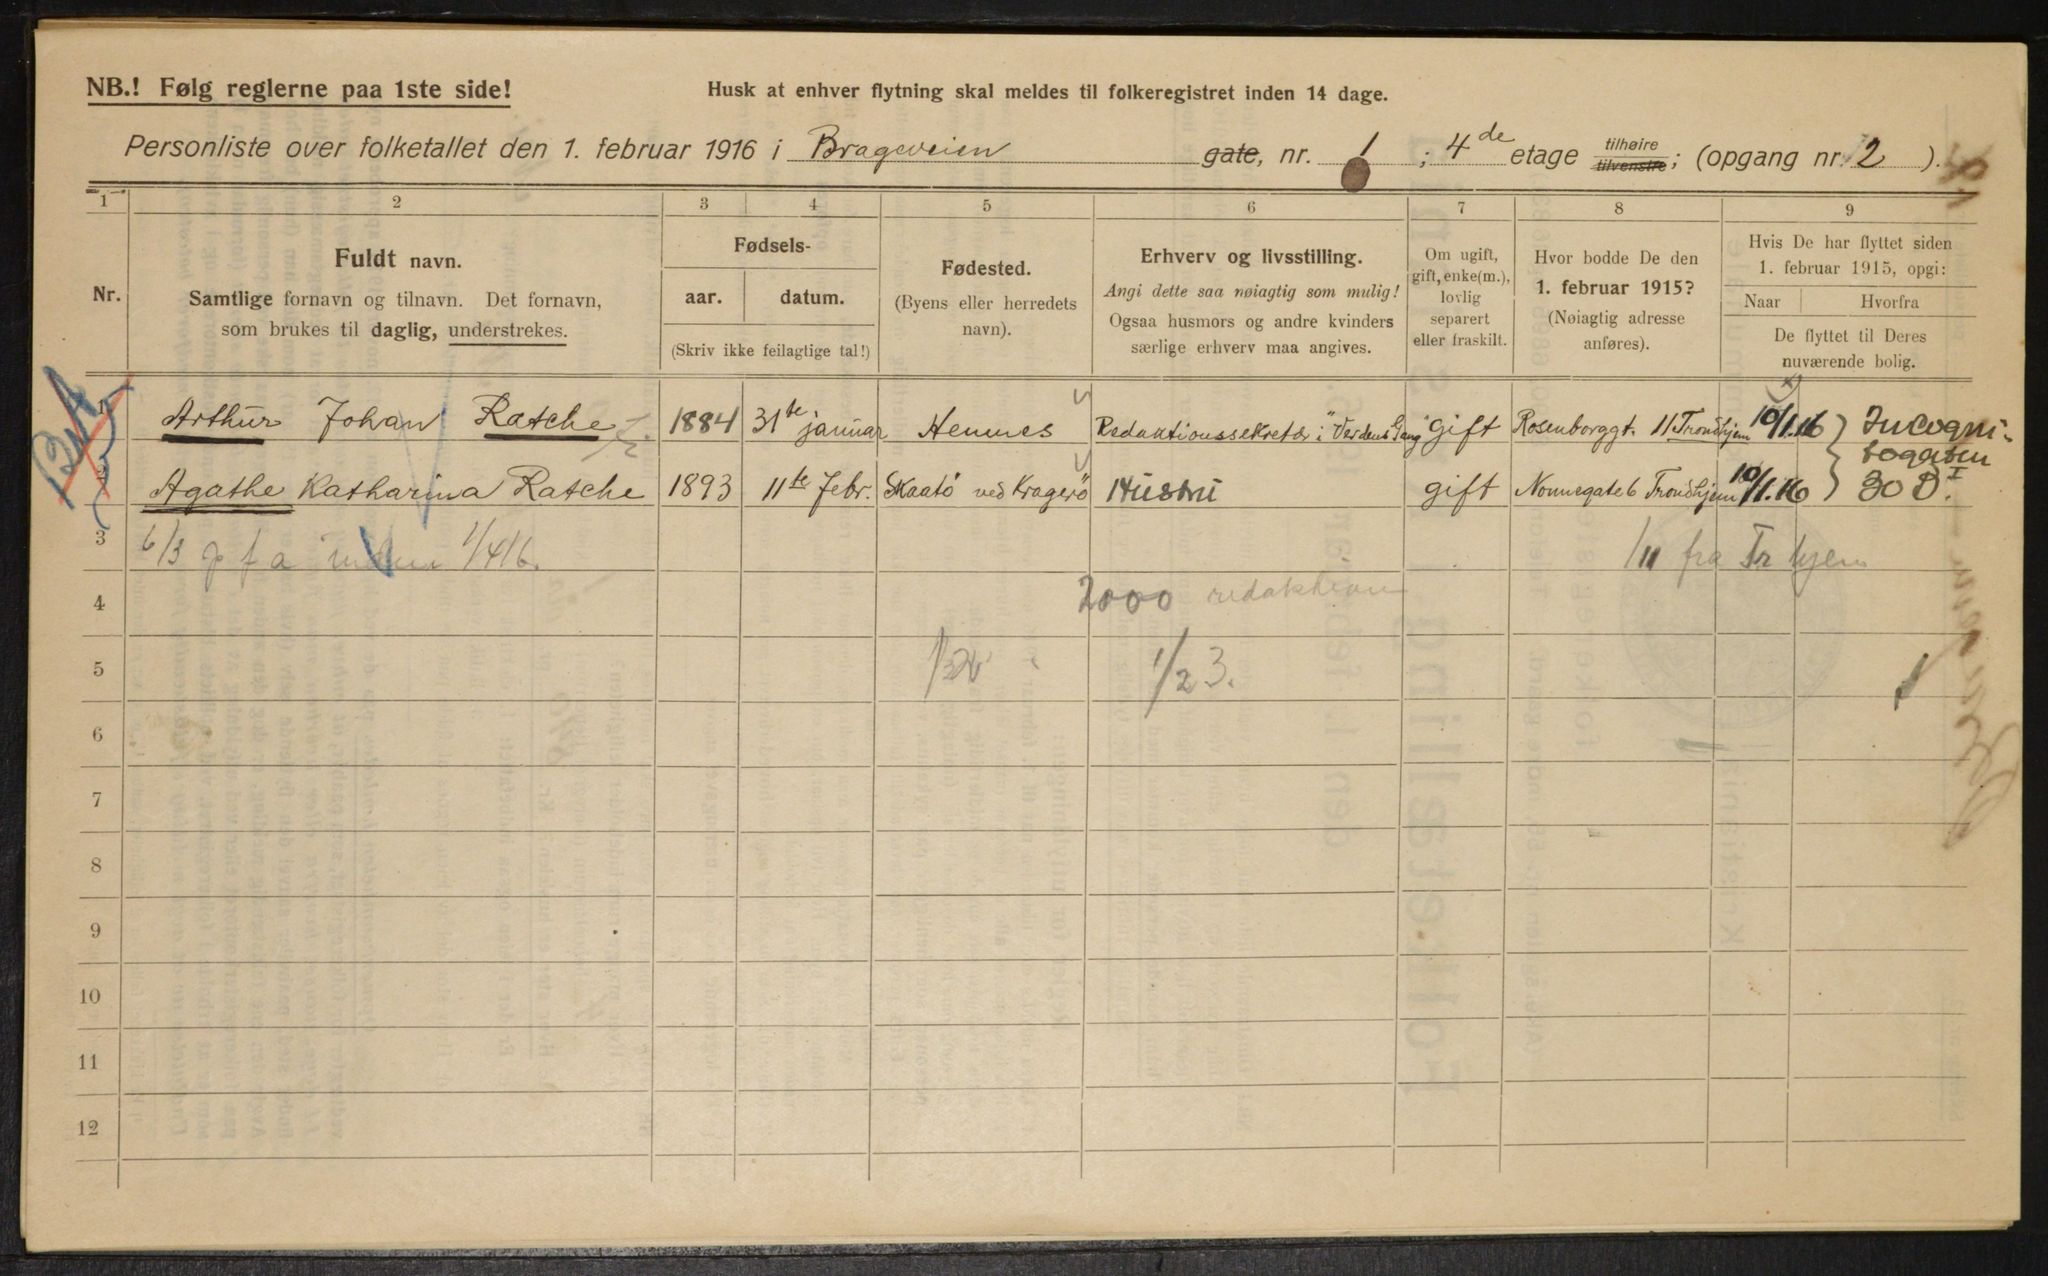 NB.! Følg reglerne paa 1ste side!
Husk at enhver flytning skal meldes til folkeregistret inden 14 dage.
Personliste over folketallet den 1. februar 1916 i Brageveien gate, nr. 1 ; 4de etage tilhøire tilvenstre ; (opgang nr. 2 ).
1 2 3 4 5 6 7 8 9
Nr.
Fuldt navn.
Samtlige fornavn og tilnavn. Det fornavn,
som brukes til daglig, understrekes.
Fødsels-
aar. datum.
(Skriv ikke feilagtige tal!)
Fødested.
(Byens eller herredets
navn).
Erhverv og livsstilling.
Angi dette saa nøiagtig som mulig!
Ogsaa husmors og andre kvinders
særlige erhverv maa angives.
Om ugift,
gift, enke(m.),
lovlig
separert
eller fraskilt.
Hvor bodde De den
1. februar 1915?
(Nøiagtig adresse
anføres).
Hvis De har flyttet siden
1. februar 1915, opgi:
Naar Hvorfra
De flyttet til Deres
nuværende bolig.
1 Arthur Johan Ratche 1884 31te januar Hennes Redaktionssekretær i "Verdens Gang" gift Rosenborggt. 11 Trondhjem 10/1.16 Incogni-
togaten
2 Agathe Katharina Ratche 1893 11te Febr. Skaatö ved Kragerö Hustru gift Nonnegate 6 Trondhjem 10/1.16 30 B. I
3 6/3 1/4 16. 1/11 fra Tr hjem
4 2000 redaktionen
5 1/23.
6
7
8
9
10
11
12